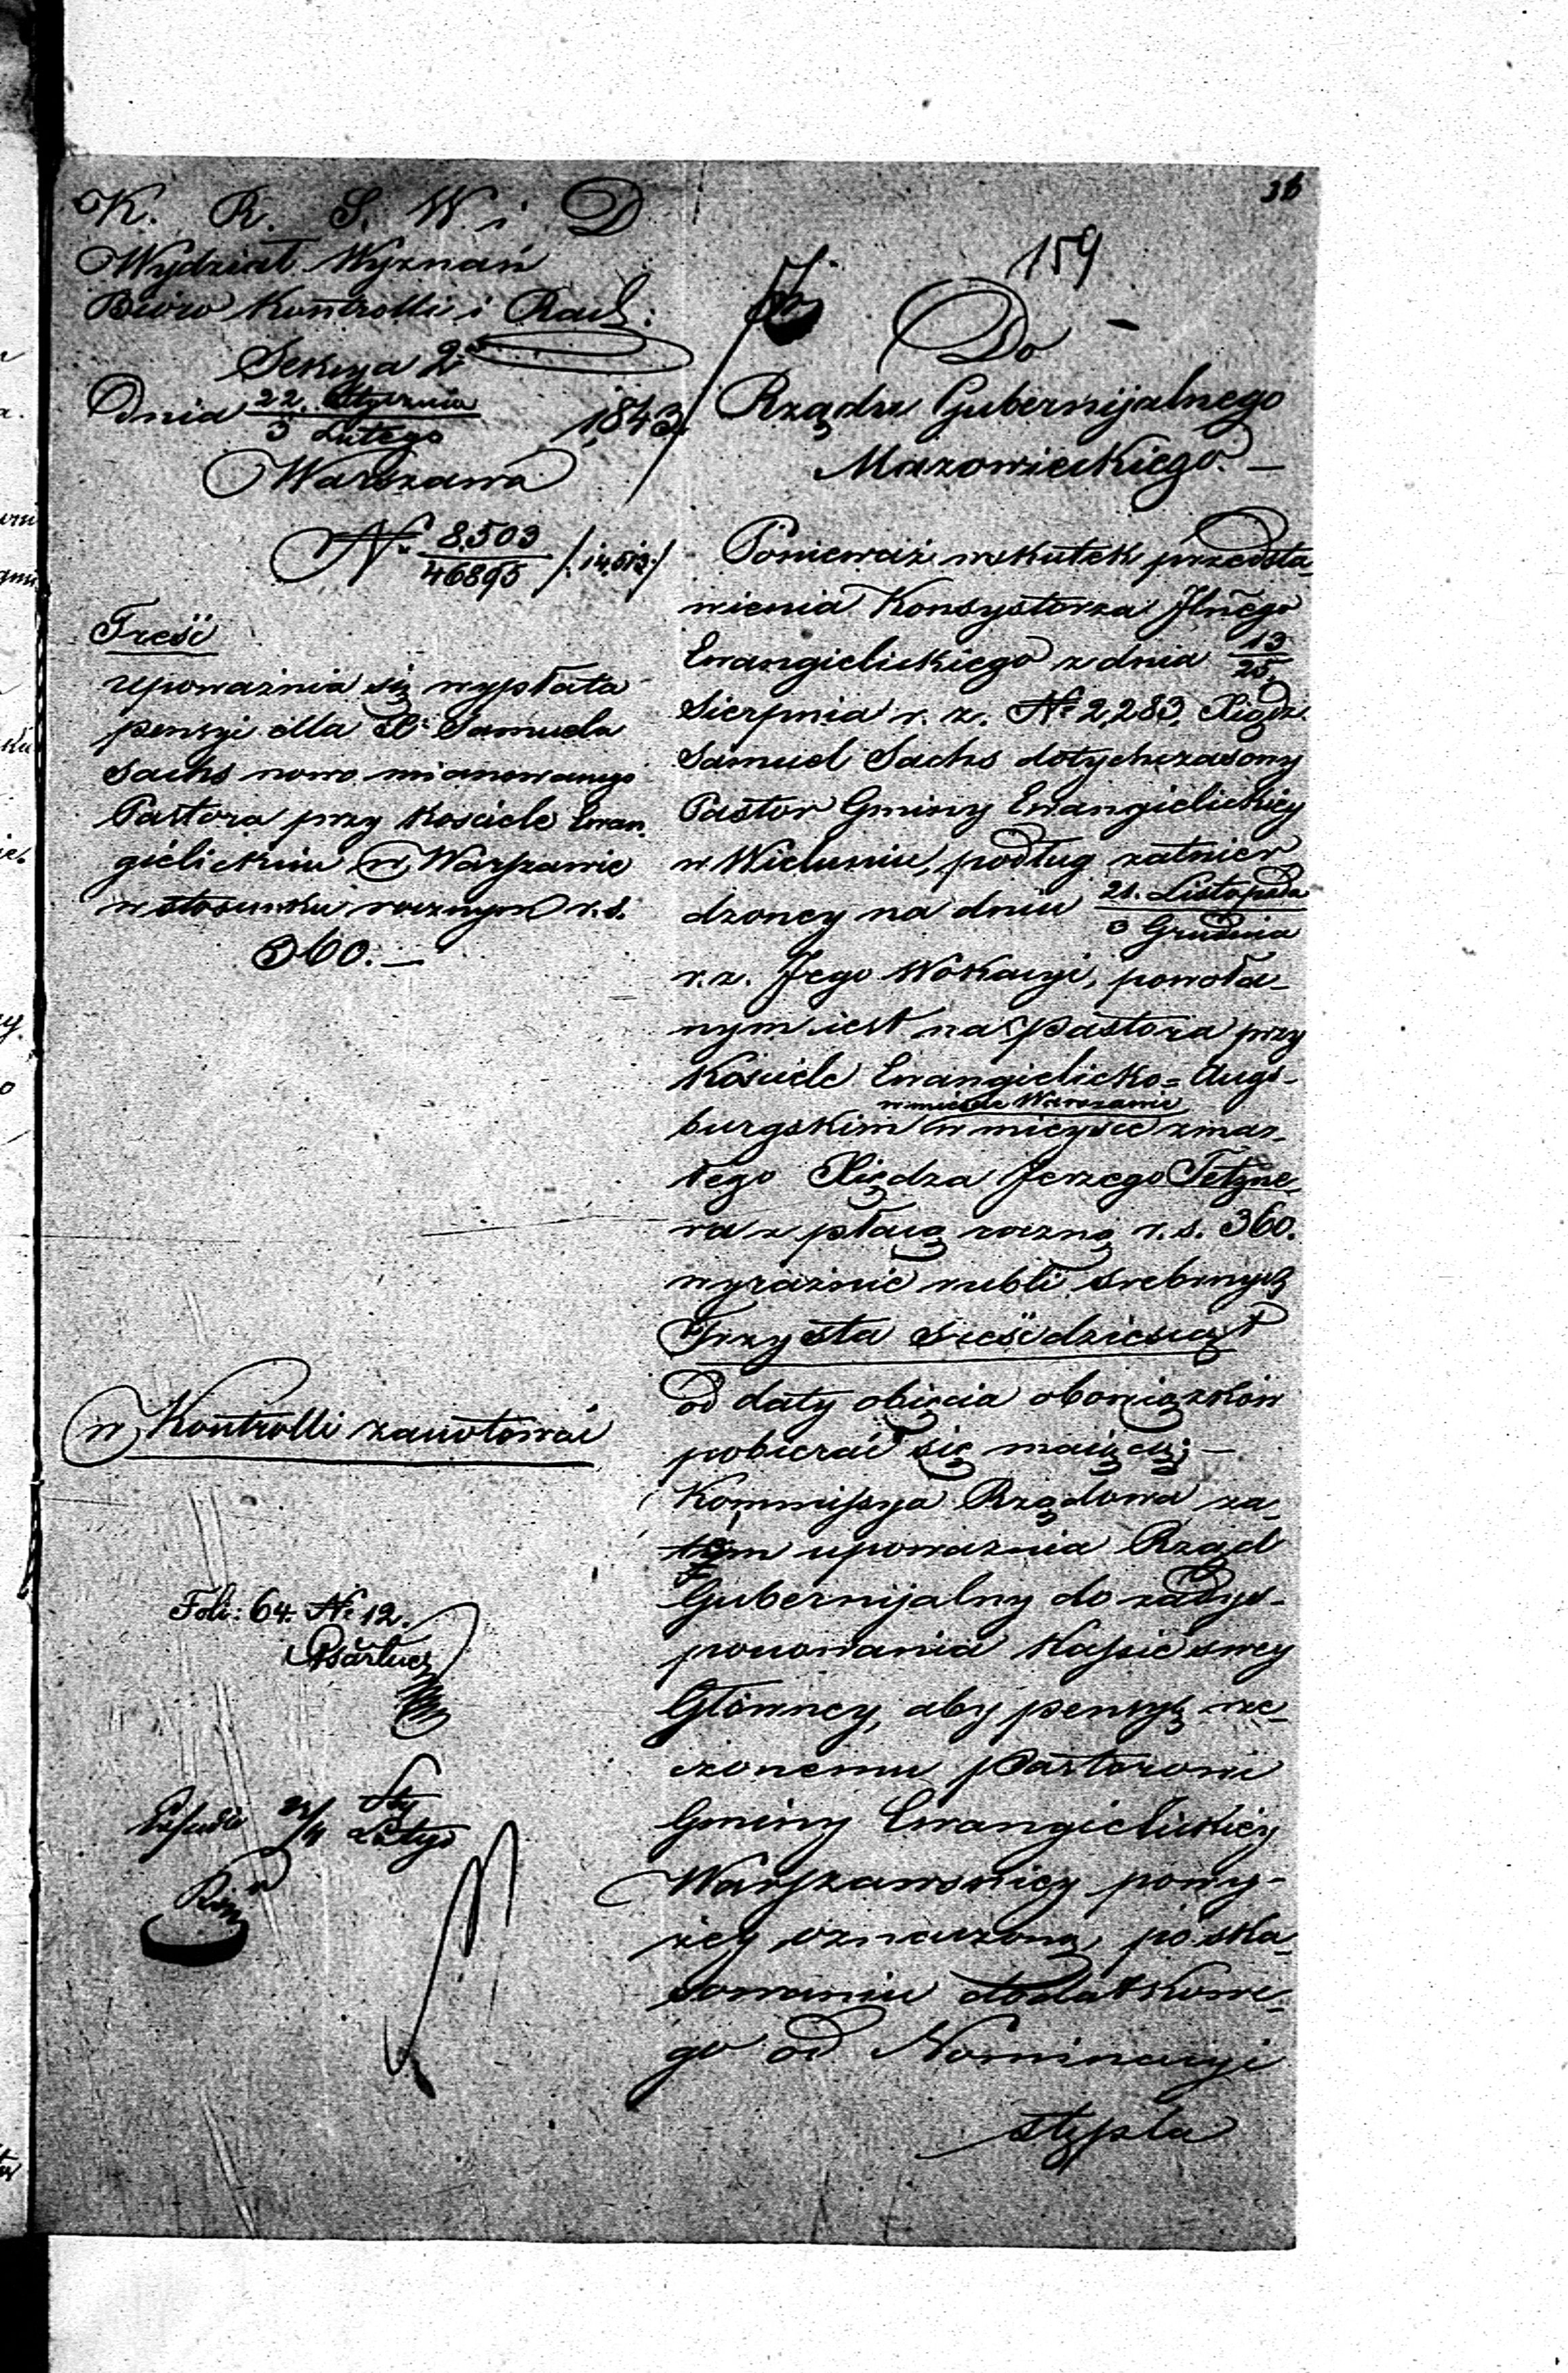 36
159
K. R. S. W i D
Wydział Wyznań
Bióro Kontrolli i Rach:
Sekcya 2
Dnia 22. Stycznia / 3 Lutego 1843
Warszawa
No 8,503 / 46895 /: 14,513 :/
Treść
upoważnia się wypłata
pensyi dla X. Samuela
Sachs nowo mianowanego
Pastora przy Kościele Ewan-
gielickim w Warszawie
w stosunku rocznym r.s.
360.—
w Kontrolli zanotować
Foli: 64. No 12.
Do
Rządu Gubernijalnego
Mazowieckiego.—
Ponieważ wskutek przedsta-
wienia Konsystorza Jlnego
Ewangielickiego z dnia 13/25
Sierpnia r. z. No 2,283. Xiądz
Samuel Sachs dotychczasowy
Pastor Gminy Ewangielickiey
w Wieluniu, podług zatwier-
dzoney na dniu 21. Listopada / 3 Grudnia
r. z. Jego Wokacyi, powoła-
nym iest na Pastora przy
Kościele Ewangielicko=Augs-
w mieście Warszawie
burgskim w mieysce zmar-
łego Xiędza Jerzego Tetzne-
ra z płacą roczną r. s. 360.
wyraźnie rubli srebrnych
Trzysta sześćdziesiąt
od daty obięcia obowiązków
pobierać się maiącą;—
Kommissya Rządowa za-
tém upoważnia Rząd
Gubernijalny do zadys-
ponowania Kassie swey
Główney, aby pensyą rze-
czonemu Pastorowi
Gminy Ewangielickiey
Warszawskiey powy-
żey oznaczoną, po ska-
sowaniu dodatkowe-
go od Nominacyi
stępla